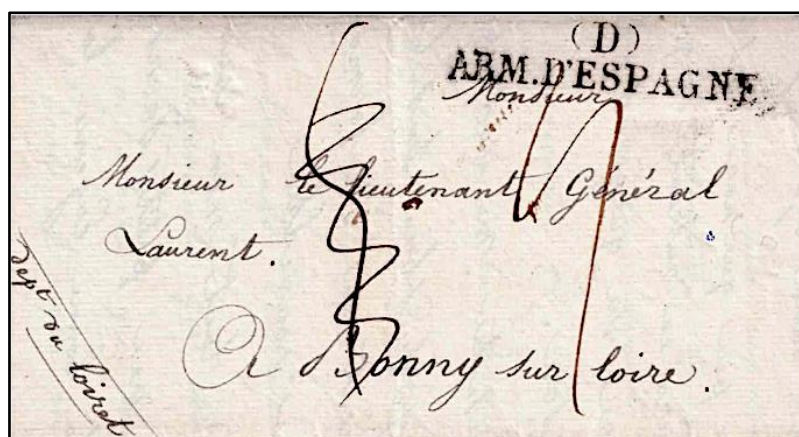 (D)
ARM. D'ESPAGNE
Monsieur
Monsieur le lieutenant Général
Laurent.
A Bonny sur loire.
Dept du loiret